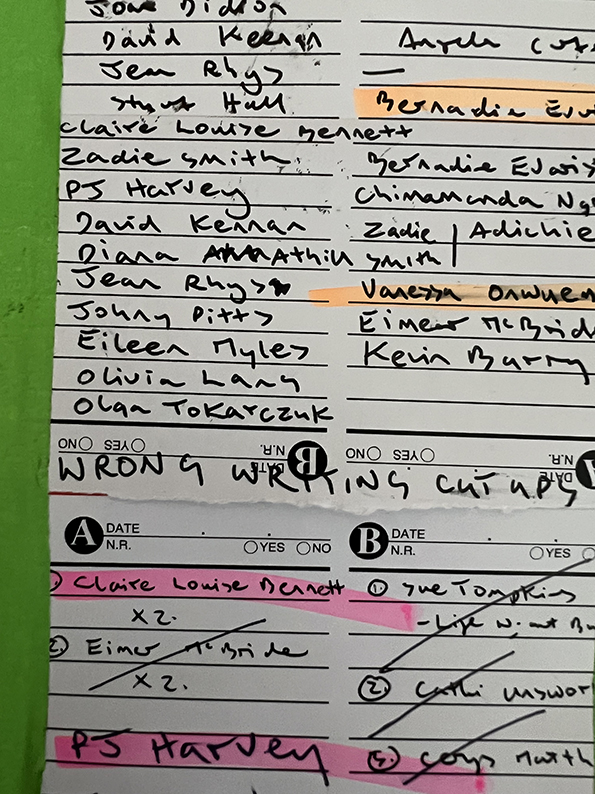 Joan Didion
David Keenan
Jean Rhys
Stuart Hall
Claire Louise Bennett
Zadie Smith
PJ Harvey
David Kennan
Diana Athill
Jean Rhys
Johny Pitts
Eileen Myles
Olivia Lang
Olga Tokarczuk
Angela
—
Bernadine
Bernadine
Chimamanda
Zadie | Adichie
Smith
Vanessa
Eimear McBride
Kevin Barry
NO YES DATE N.R. B
NO YES DATE N.R.
WRONG WRITING CUT UPS
A DATE
N.R. YES NO
① Claire Louise Bennett
X2.
②. Eimer McBride
X2.
PJ Harvey
B DATE
N.R. YES
① Sue Tompkins
②. Cathi